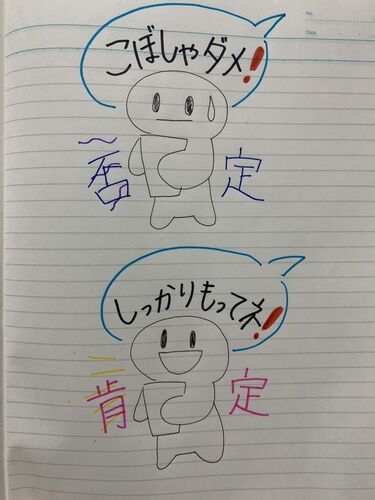 No.
Date
こぼしゃダメ!
否定
しっかりもってネ!
肯定